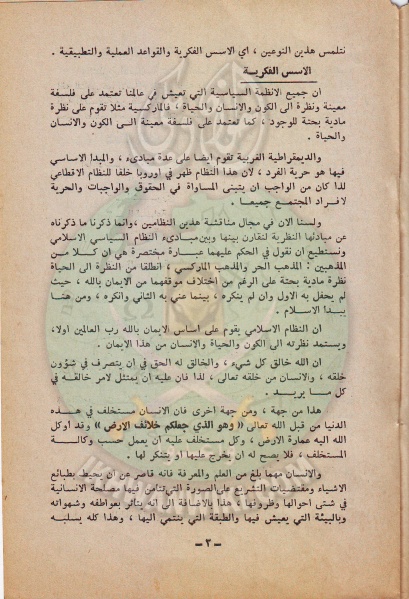 نتلمس هذين النوعين ، اي الاسس الفكرية والقواعد العملية والتطبيقية .
الاسس الفكرية
ان جميع الانظمة السياسية التي تعيش في عالمنا تعتمد على فلسفة
معينة ونظرة الى الكون والانسان والحياة ، فالماركسية مثلا تقوم على نظرة
مادية بحتة للوجود ، كما تعتمد على فلسفة معينة الى الكون والانسان
والحياة .
والديمقراطية الغربية تقوم ايضا على عدة مبادىء ، والمبدا الاساسي
فيها هو حرية الفرد ، لان هذا النظام ظهر في اوروبا خلفا للنظام الاقطاعي
لذا كان من الواجب ان يتبنى المساواة في الحقوق والواجبات والحرية
لافراد المجتمع جميعا .
ولسنا الان في مجال مناقشة هذين النظامين ، وانما ذكرنا ما ذكرناه
عن مبادئها النظرية لنقارن بينها وبين مبادىء النظام السياسي الاسلامي
ونستطيع ان نقول في الحكم عليهما عبارة مختصرة هي ان كلا من
المذهبين : المذهب الحر والمذهب الماركسي ، انطلقا من النظرة الى الحياة
نظرة مادية بحتة على الرغم من اختلاف موقفهما من الايمان بالله ، حيث
لم يحفل به الاول وان لم ينكره ، بينما عني به الثاني وانكره ، ومن هنا
يبدا الاسلام .
ان النظام الاسلامي يقوم على اساس الايمان بالله رب العالمين اولا،
ويستمد نظرته الى الكون والحياة والانسان من هذا الايمان .
ان الله خالق كل شيء ، والخالق له الحق في ان يتصرف في شؤون
خلقه ، والانسان من خلقه تعالى ، لذا فان عليه ان يمتثل لامر خالقه في
كل ما يريد .
هذا من جهة ، ومن جهة اخرى فان الانسان مستخلف في هذه
الدنيا من قبل الله تعالى « وهو الذي جعلكم خلائف الارض » وقد اوكل
الله اليه عمارة الارض ، وكل مستخلف عليه ان يعمل حسب وكالة
المستخلف ، فلا يصح له ان يخرج عليها او يتنكر لها .
والانسان مهما بلغ من العلم والمعرفة فانه قاصر عن ان يحيط بطبائع
الاشياء ومقتضيات التشريع على الصورة التي تتامن فيها مصلحة الانسانية
في شتى احوالها وظروفها ، هذا بالاضافة الى انه يتأثر بعواطفه وشهواته
وبالبيئة التي يعيش فيها والطبقة التي ينتمي اليها ، وهذا كله يسلبه
– ٣ –